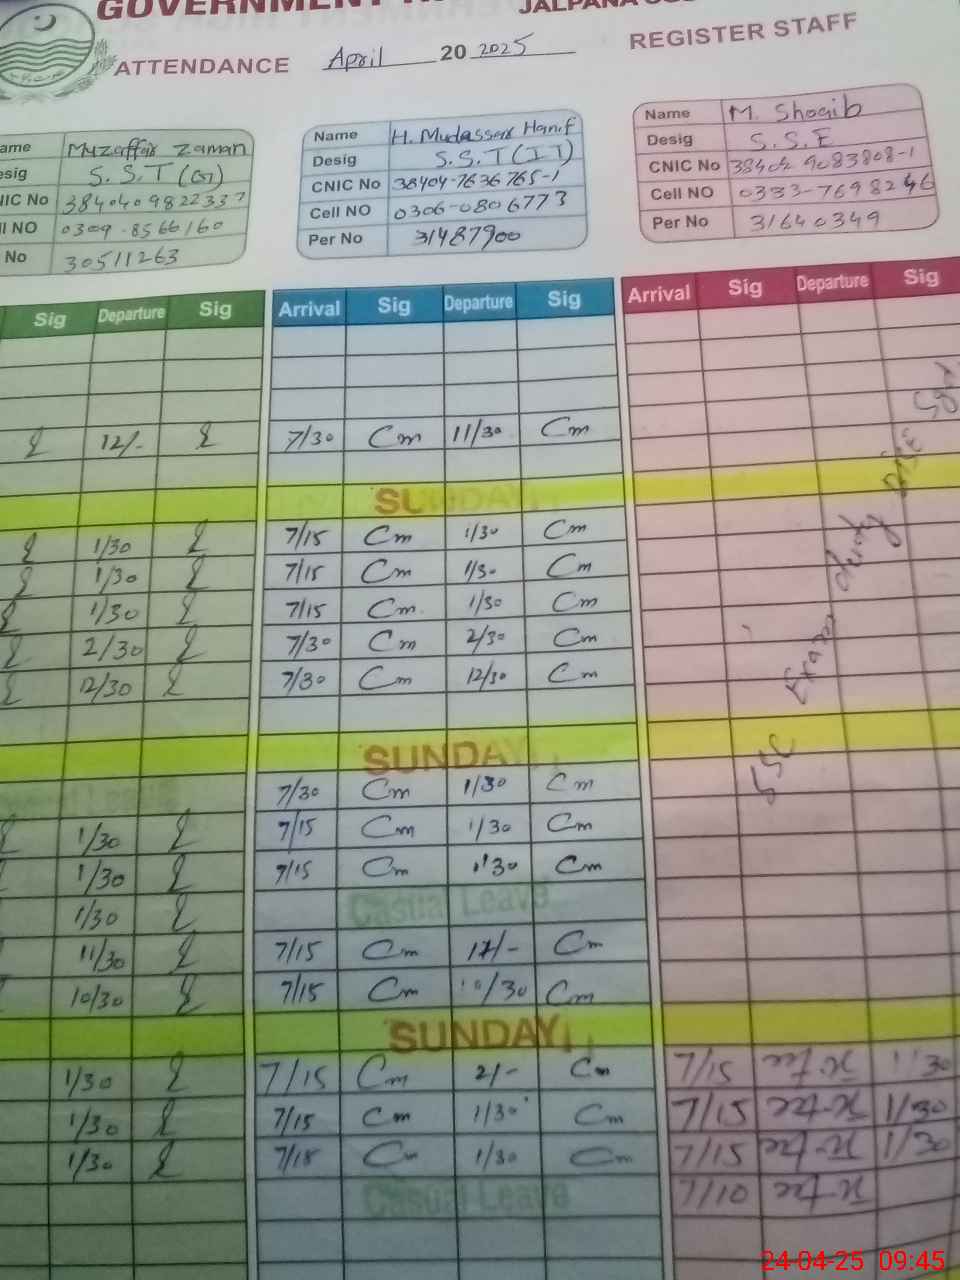 GOVERNMENT
JALPANA
ATTENDANCE April 20 2025 REGISTER STAFF
ame Muzaffar Zaman
esig S.S.T (G)
IC No 3840409822337
ll NO 0309-8566160
No 30511263
Name H. Mudassar Hanif
Desig S.S.T (IT)
CNIC No 38404-7636765-1
Cell NO 0306-0806773
Per No 31487900
Name M. Shoaib
Desig S.S.E
CNIC No 38402 9083808-1
Cell NO 0333-7698246
Per No 31640349
Sig Departure Sig Arrival Sig Departure Sig Arrival Sig Departure Sig
12/- 7/30 Cm 11/30 Cm
SUNDAY
1/30 7/15 Cm 1/30 Cm
1/30 7/15 Cm 1/30 Cm
1/30 7/15 Cm 1/30 Cm
2/30 7/30 Cm 2/30 Cm
12/30 7/30 Cm 12/30 Cm
SSC Exam
SUNDAY
7/30 Cm 1/30 Cm
1/30 7/15 Cm 1/30 Cm
1/30 7/15 Cm 1/30 Cm
1/30 Casual Leave
11/30 7/15 Cm 12/- Cm
10/30 7/15 Cm 10/30 Cm
SUNDAY
1/30 7/15 Cm 2/- Cm 7/15 1/30
1/30 7/15 Cm 1/30 Cm 7/15 1/30
1/30 7/15 Cm 1/30 Cm 7/15 1/30
Casual Leave 7/10
24-04-25 09:45